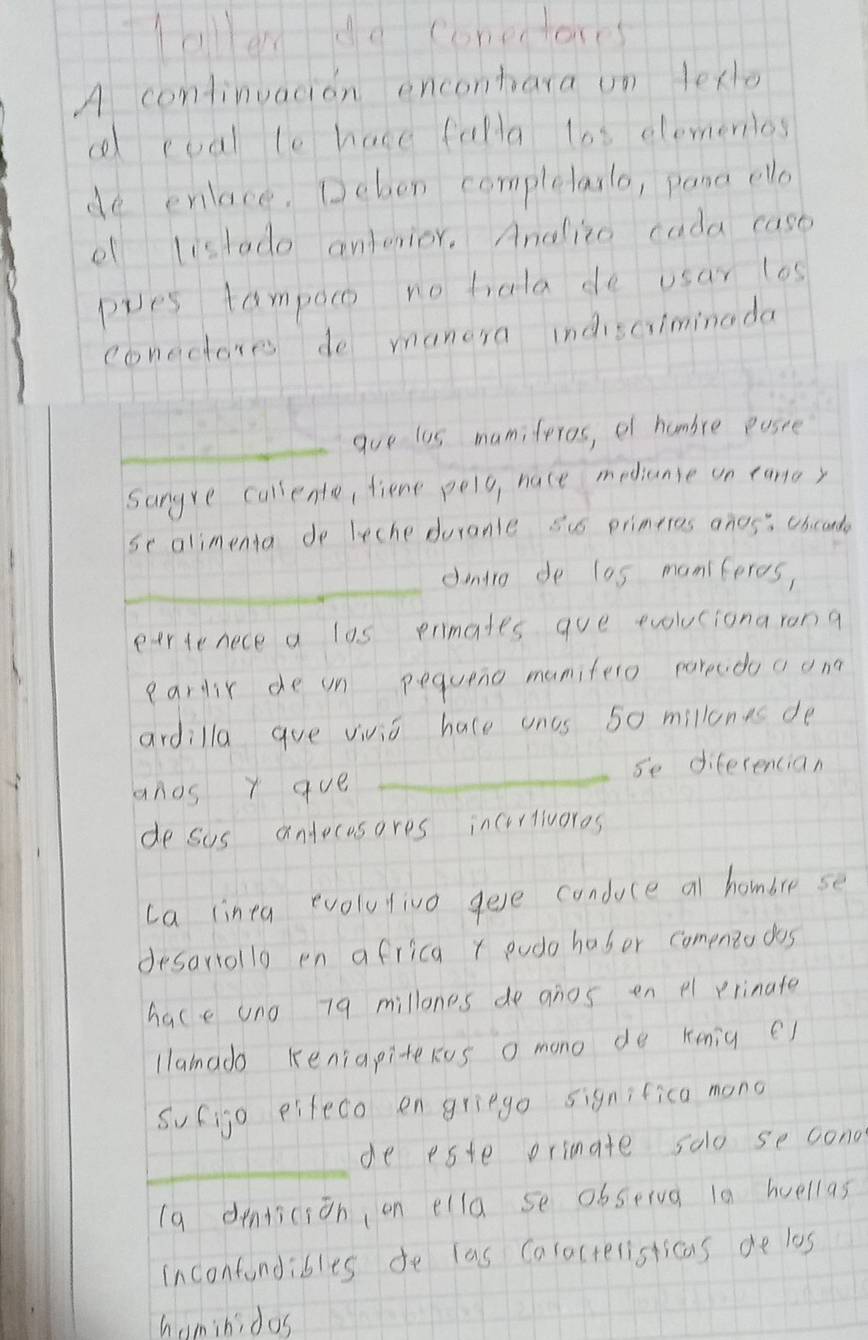 Taller de conectores
A continuación encontrara un texto
al cual le hace falta los elementos
de enlace. Deben completarlo, para ello
el listado anterior. Analizo cada caso
pues tampoco no trata de usar los
conectores de manera indiscriminada
que los mamiferos, el hombre posee
sangre caliente, tiene pelo, nace mediante un parto y
se alimenta de leche durante sus primeros años: ubicando
dentro de los mamiferos,
pertenece a los primates que evolucionaron a
partir de un pequeño mamifero parecido a una
ardilla que vivió hace unos 50 millones de
años y que
se diferencian
de sus antecesores
La linea evolutivo que conduce al hombre se
desarrollo en africa y pudo haber comenzados
hace uno 19 millones de años en el primate
llamado Keniapitekus o mono de Kenia el
sufijo piteco en griego significa mono
de este primate solo se cono
la dentición, en ella se observa la huellas
inconfundibles de las caracteristicas de los
hominidos